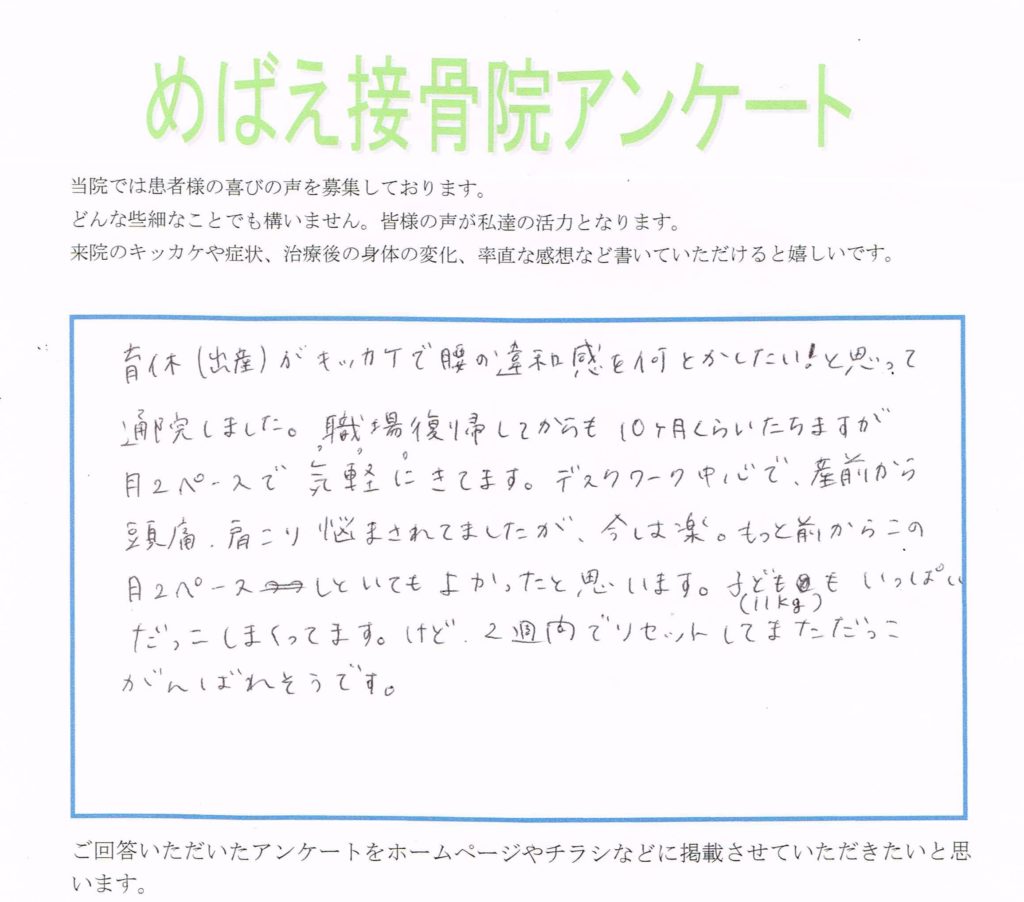 めばえ接骨院アンケート
当院では患者様の喜びの声を募集しております。
どんな些細なことでも構いません。皆様の声が私達の活力となります。
来院のキッカケや症状、治療後の身体の変化、率直な感想など書いていただけると嬉しいです。
育休(出産)がキッカケで腰の違和感を何とかしたい!と思って
通院しました。職場復帰してからも10ヶ月くらいたちますが
月2ペースで気軽にきてます。デスクワーク中心で、産前から
頭痛、肩こり悩まされてましたが、今は楽。もっと前からこの
月2ペースしといてもよかったと思います。子ども(11kg)もいっぱい
だっこしまくってます。けど、2週間でリセットしてまただっこ
がんばれそうです。
ご回答いただいたアンケートをホームページやチラシなどに掲載させていただきたいと思
います。